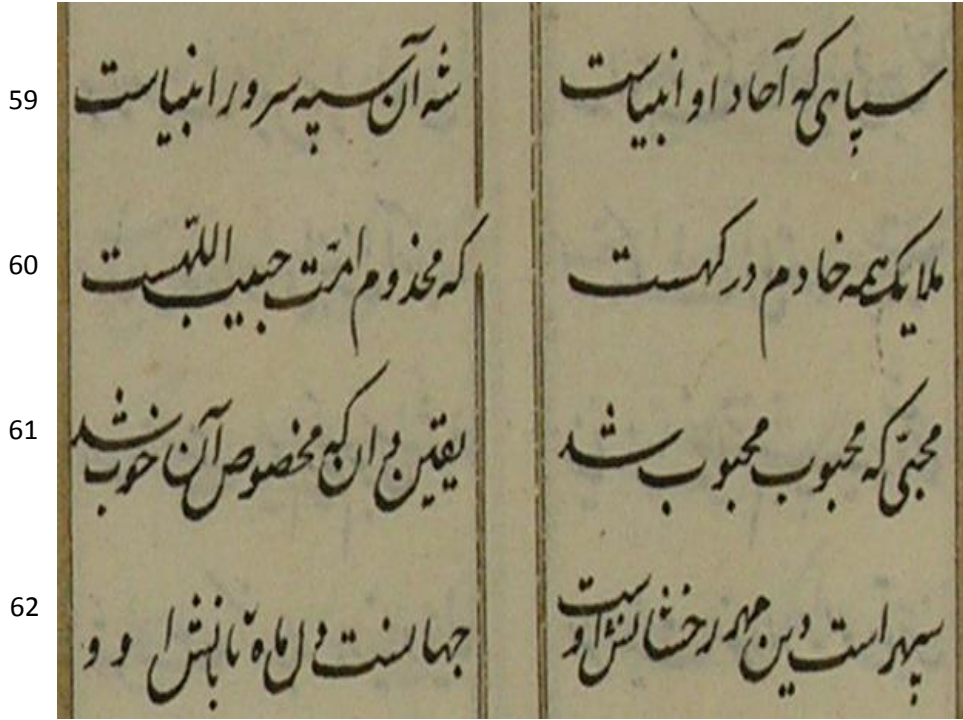 59 سپاهی که آحاد او انبیاست شه آن سپه سرور انبیاست
60 ملایک همه خادم درکهست که مخدوم امّت حبیب اللّهست
61 محبّی که محبوب محبوب شد یقین دان که مخصوص آن خوب شد
62 سپهر است دین مهر رخشانش اوست جهانست دل ماه تابانش او